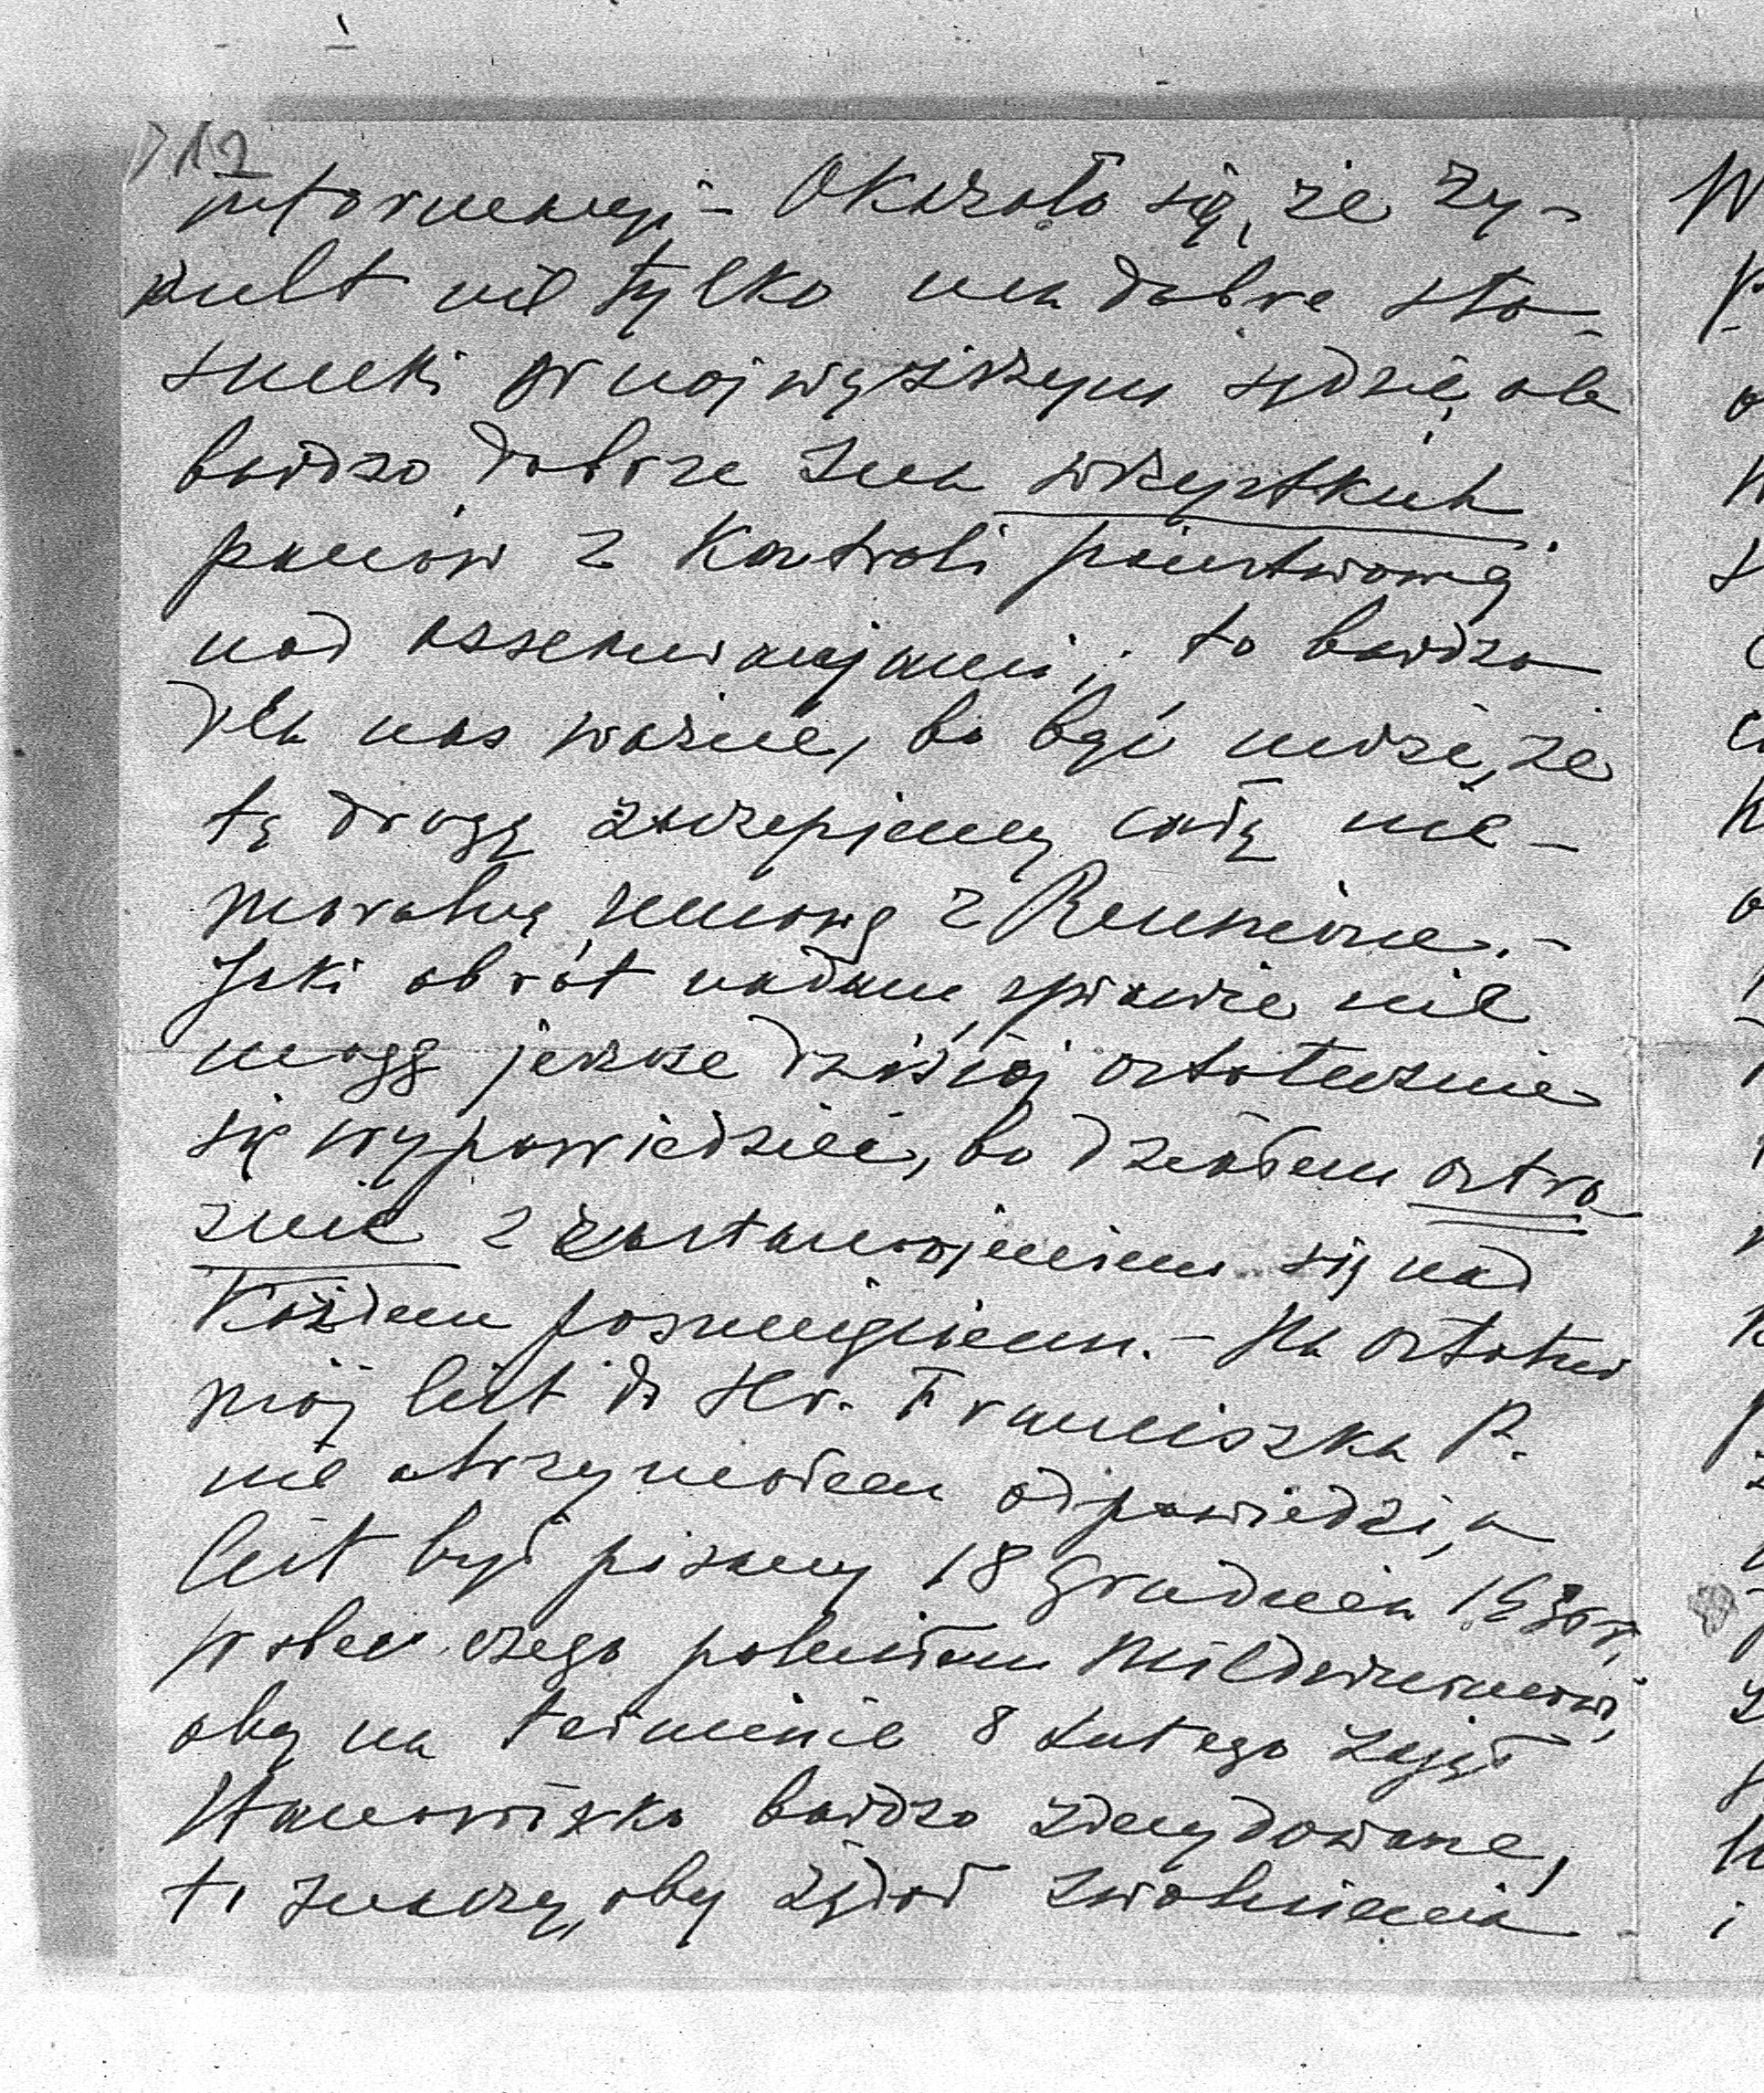 12
informacji – Okazało się, że Zy-
pult nie tylko ma dobre sto-
sunki w najwyższym sądzie, ale
bardzo dobrze zna wszystkich
panów z Kontroli państwowej
nad assekuracyjami; to bardzo
dla nas ważne, bo być może, że
tą drogą zaczepiemy całą nie-
moralną umowę z Reunione. –
Jaki obrót nadam sprawie nie
mogę jeszcze dzisiaj ostatecznie
się wypowiedzieć, bo działam ostro
żnie z zastanowieniem się nad
Każdem posunięciem. – Na ostatni
mój list do Hr. Franciszka P.
nie otrzymałem odpowiedzi, a
list był pisany 18 Grudnia 1930 r.
wobec czego poleciłem
aby na terminie 8 Lutego zajął
Stanowisko bardzo zdecydowane,
to znaczy, aby żądał zwolnienia